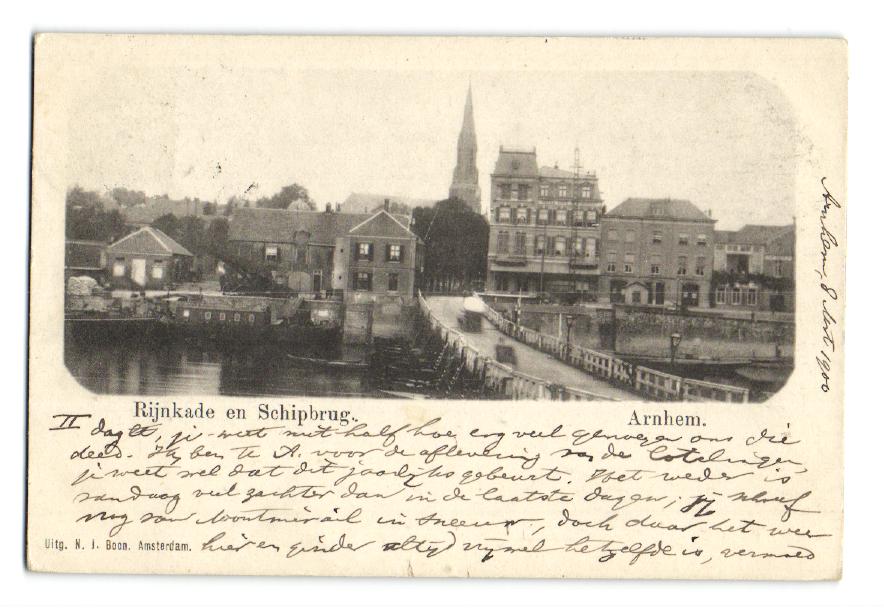 Rijnkade en Schipbrug.
Arnhem.
Arnhem, 8 Mrt 1900
II
dagte, je weet niet half hoe erg veel genoegen ons die
deed. Hij ben te A. voor de aflevering van de lotelingen,
je weet wel dat dit jaarlijks gebeurt. Het weder is
vandaag veel zachter dan in de laatste dagen; jij schreef
nog van in sneeuw, doch daar het weer
hier en ginder altijd vrijwel hetzelfde is, vermoed
Uitg. N. J. Boon. Amsterdam.